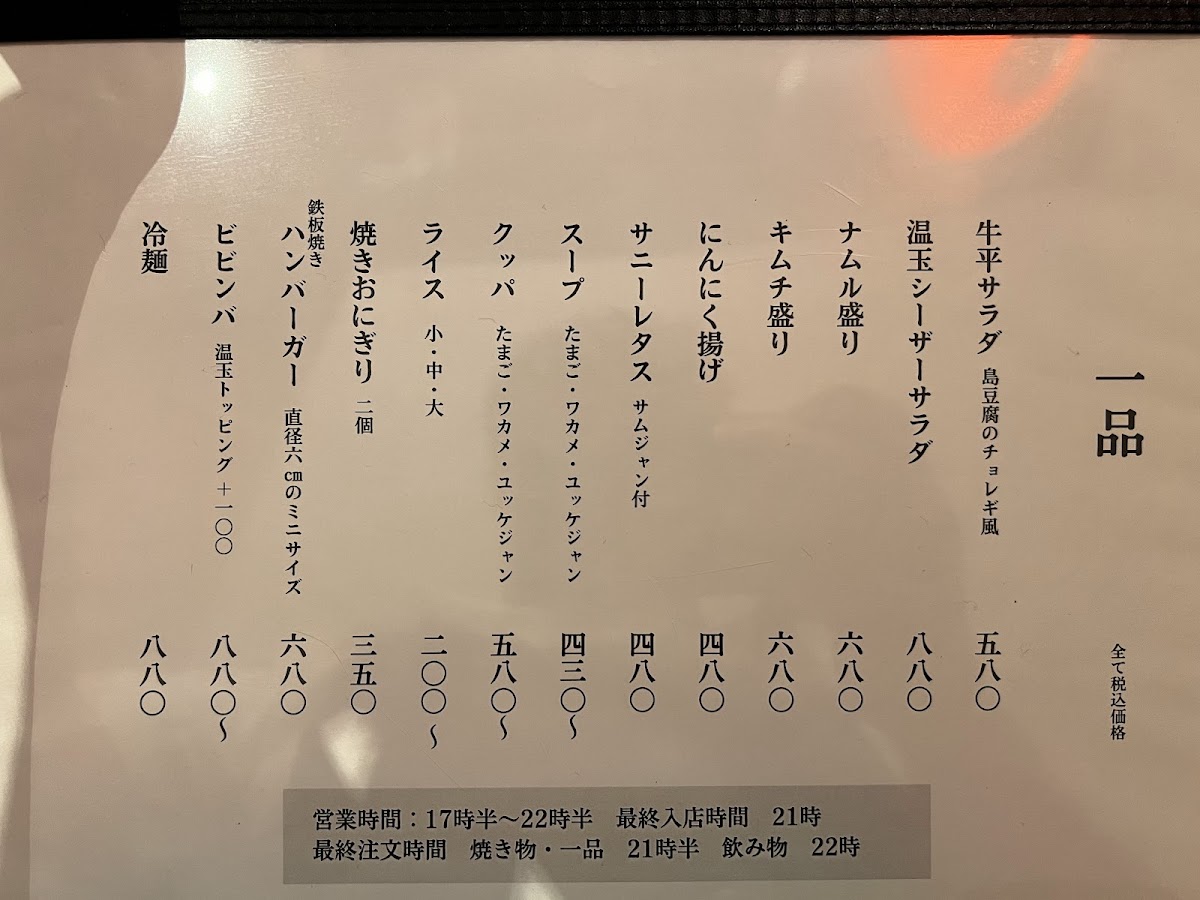 一品
全て税込価格
牛平サラダ 島豆腐のチョレギ風 五八〇
温玉シーザーサラダ 八八〇
ナムル盛り 六八〇
キムチ盛り 六八〇
にんにく揚げ 四八〇
サニーレタス サムジャン付 四八〇
スープ たまご・ワカメ・ユッケジャン 四三〇〜
クッパ たまご・ワカメ・ユッケジャン 五八〇〜
ライス 小・中・大 二〇〇〜
焼きおにぎり 二個 三五〇
鉄板焼き
ハンバーガー 直径六㎝のミニサイズ 六八〇
ビビンバ 温玉トッピング+一〇〇 八八〇〜
冷麺 八八〇
営業時間：17時半〜22時半 最終入店時間 21時
最終注文時間 焼き物・一品 21時半 飲み物 22時